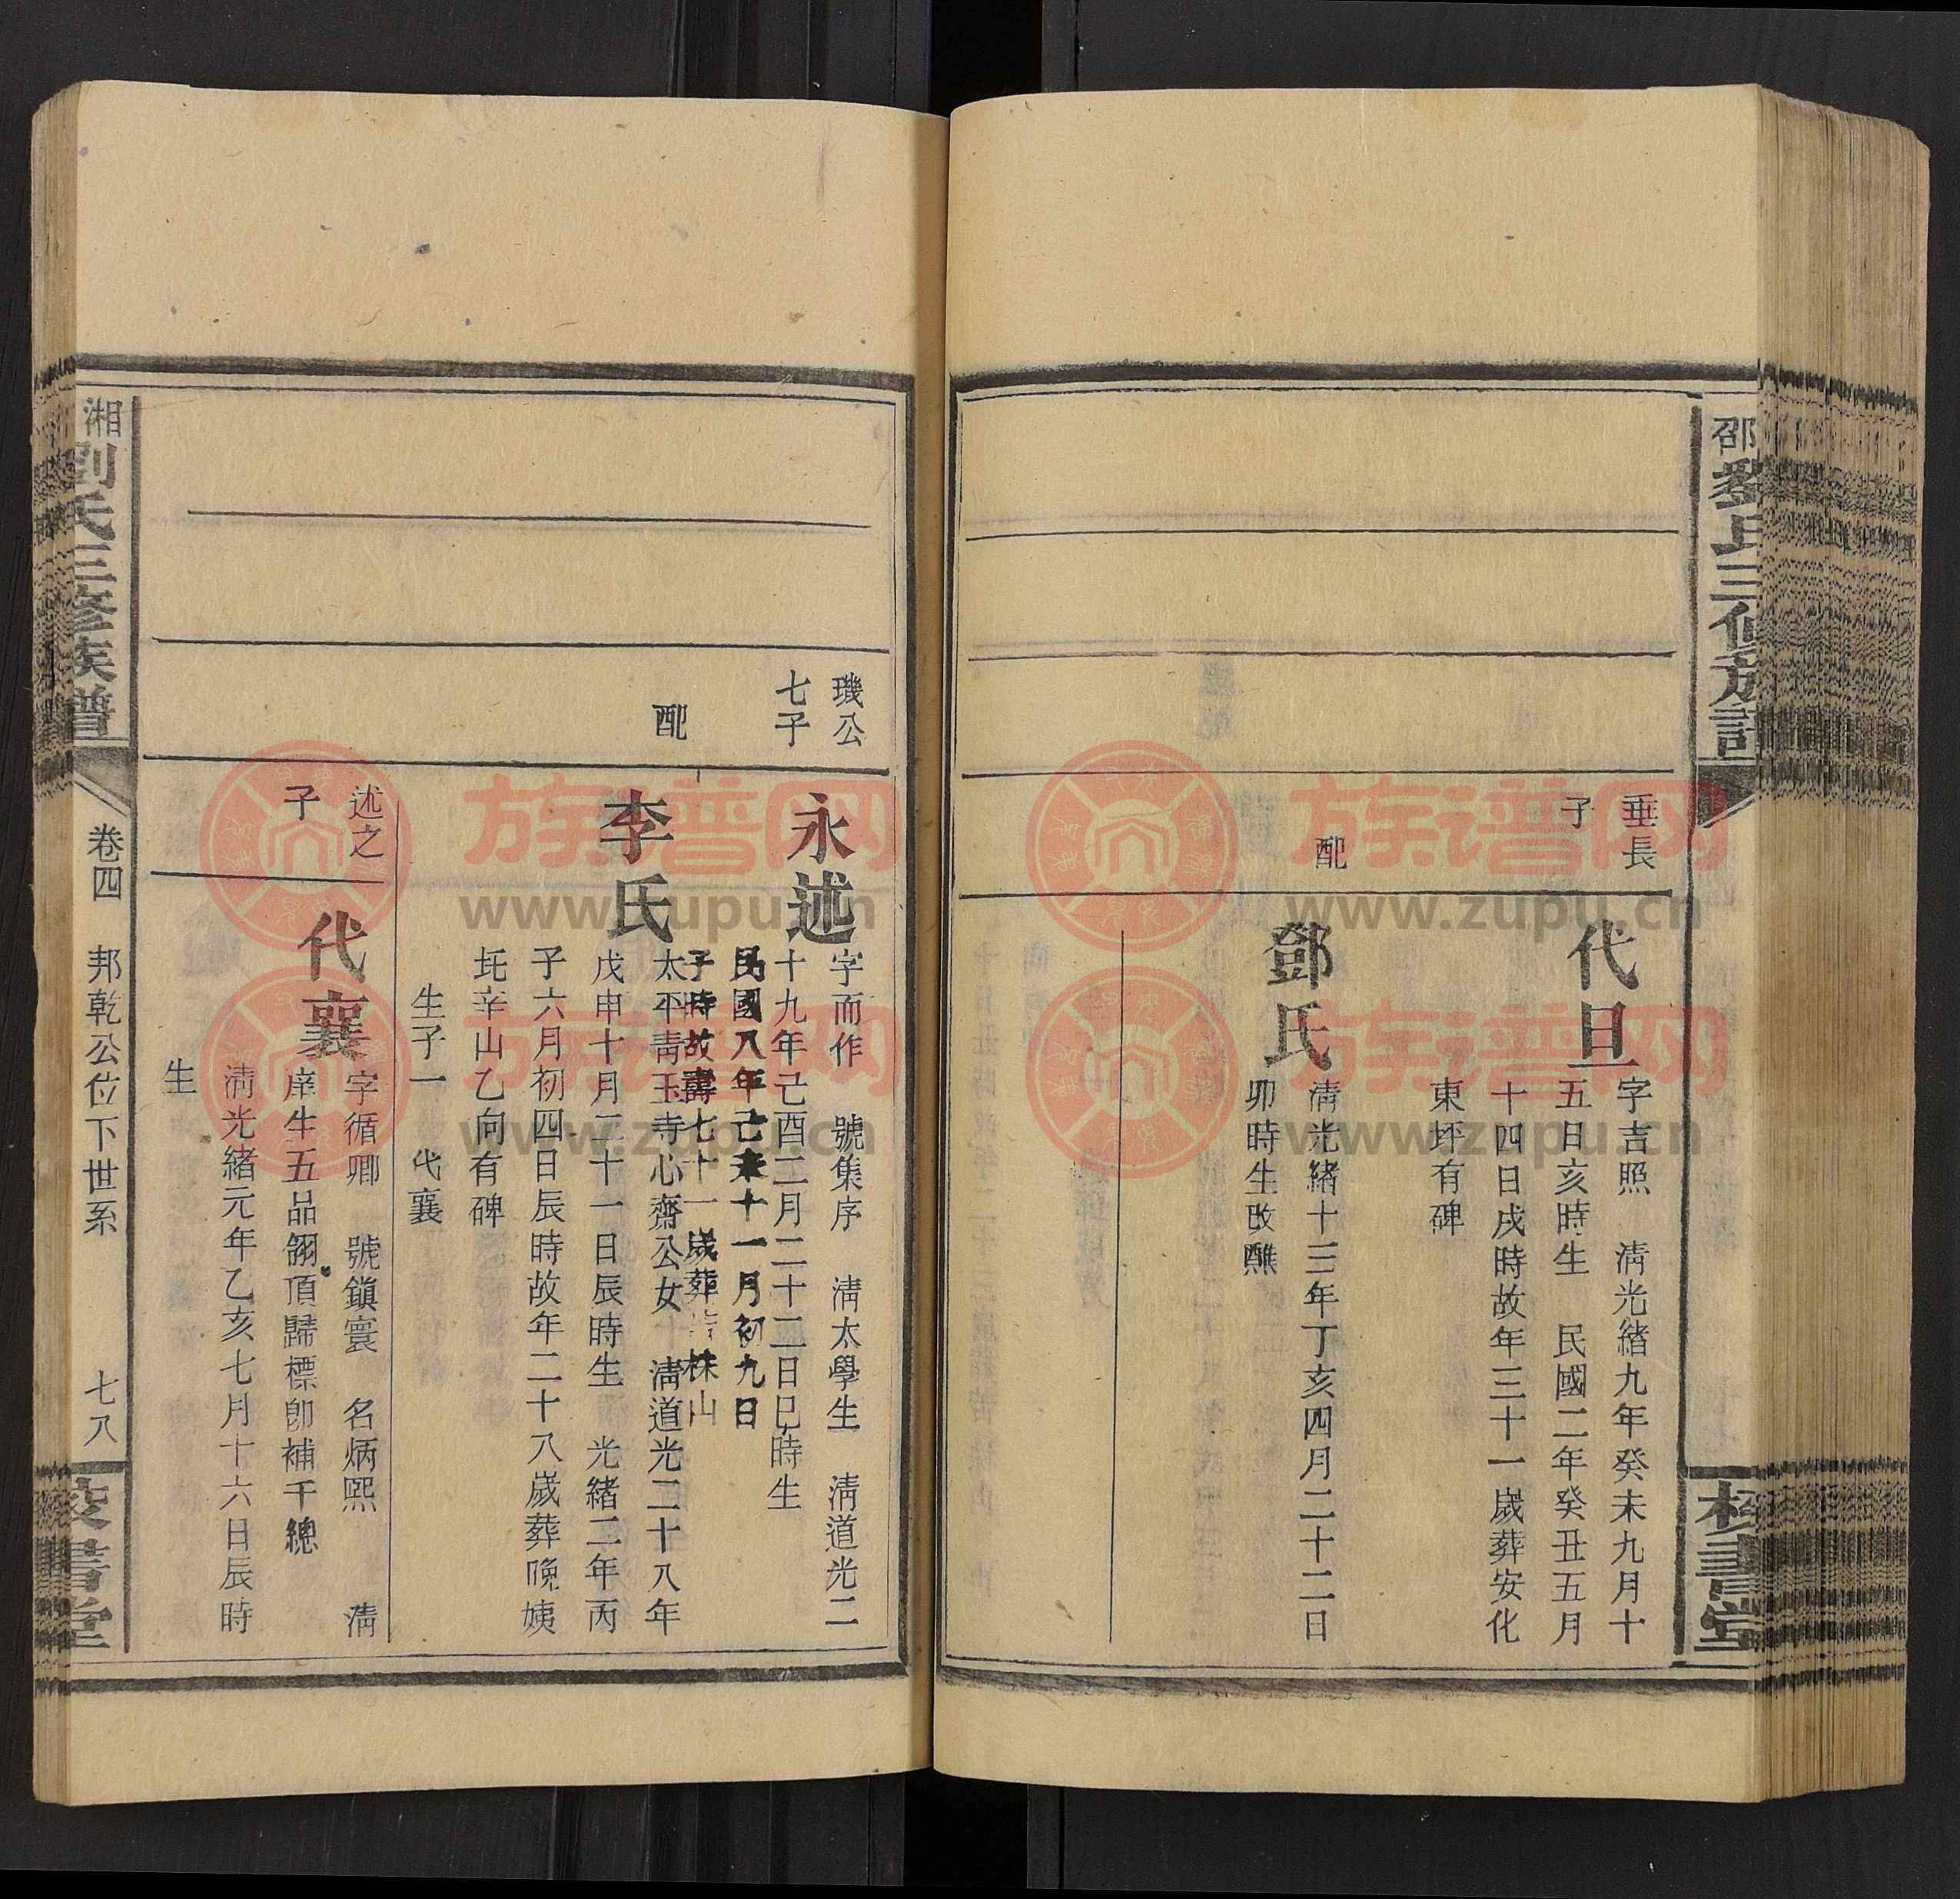 邵劉氏三修族譜
校書堂
垂長
子
代旦
字吉照 淸光緒九年癸未九月十
五日亥時生 民國二年癸丑五月
十四日戌時故年三十一歲葬安化
東坪有碑
配
鄧氏
淸光緒十三年丁亥四月二十二日
卯時生改醮
璣公
七子
永述
字而作 號集序 淸太學生 淸道光二
十九年己酉二月二十二日巳時生
民國八年己未十一月初九日
子時故壽七十一歲葬 株山
配
李氏
太平靑玉寺心齋公女 淸道光二十八年
戊申十月二十一日辰時生 光緒二年丙
子六月初四日辰時故年二十八歲葬晚姨
坉辛山乙向有碑
生子一 代襄
述之
子
代襄
字循卿 號鎭寰 名炳熙 淸
庠生五品翎頂歸標卽補千總
淸光緒元年乙亥七月十六日辰時
生
湘劉氏三修族譜
卷四 邦乾公位下世系 七八
校書堂
族譜网
www.zupu.cn
族譜网
www.zupu.cn
族譜网
www.zupu.cn
族譜网
www.zupu.cn